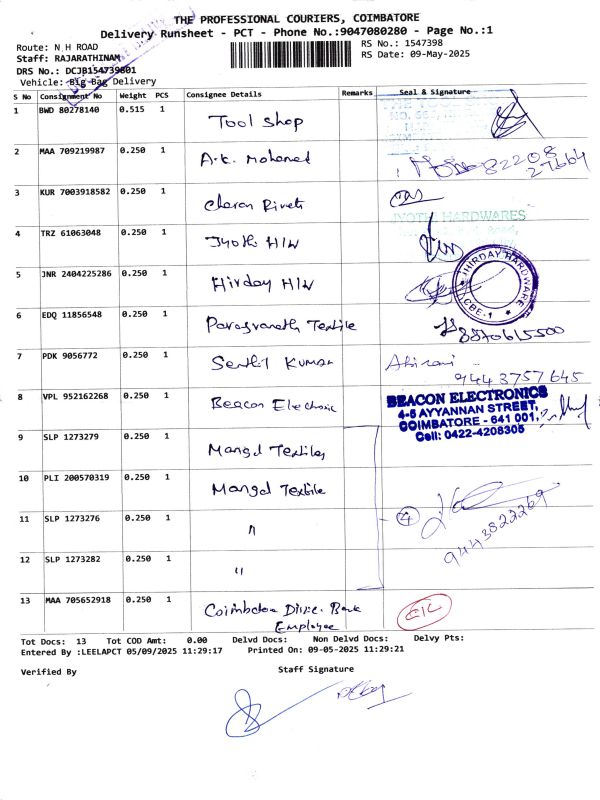 THE PROFESSIONAL COURIERS, COIMBATORE
Delivery Runsheet - PCT - Phone No.:9047080280 - Page No.:1
Route: N H ROAD
RS No.: 1547398
Staff: RAJARATHINAM
RS Date: 09-May-2025
DRS No.: DCJB154739801
Vehicle: Big Bag Delivery
S No Consignment No Weight PCS Consignee Details Remarks Seal & Signature
1 BWD 80278140 0.515 1 Tool Shop
2 MAA 709219987 0.250 1 A.K. Mohamed 82208
27664
3 KUR 7003918582 0.250 1 Charan Rivets
JYOTHI HARDWARES
4 TRZ 61063048 0.250 1 Jyoth H/W
5 JNR 2404225286 0.250 1 Hirday H/W HIRDAY HARDWARE CBE-1
6 EDQ 11856548 0.250 1 Parasvanath Textile 8870615500
7 PDK 9056772 0.250 1 Senthil Kumar
9443757645
8 VPL 952162268 0.250 1 Beacon Electronic
BEACON ELECTRONICS
4-5 AYYANNAN STREET,
COIMBATORE - 641 001.
Cell: 0422-4208305
9 SLP 1273279 0.250 1 Mangal Textiles
10 PLI 200570319 0.250 1 Mangal Textile
11 SLP 1273276 0.250 1 " 4
9443822269
12 SLP 1273282 0.250 1 "
13 MAA 705652918 0.250 1 Coimbatore Bank
Employee
Tot Docs: 13 Tot COD Amt: 0.00 Delvd Docs: Non Delvd Docs: Delvy Pts:
Entered By :LEELAPCT 05/09/2025 11:29:17 Printed On: 09-05-2025 11:29:21
Verified By Staff Signature